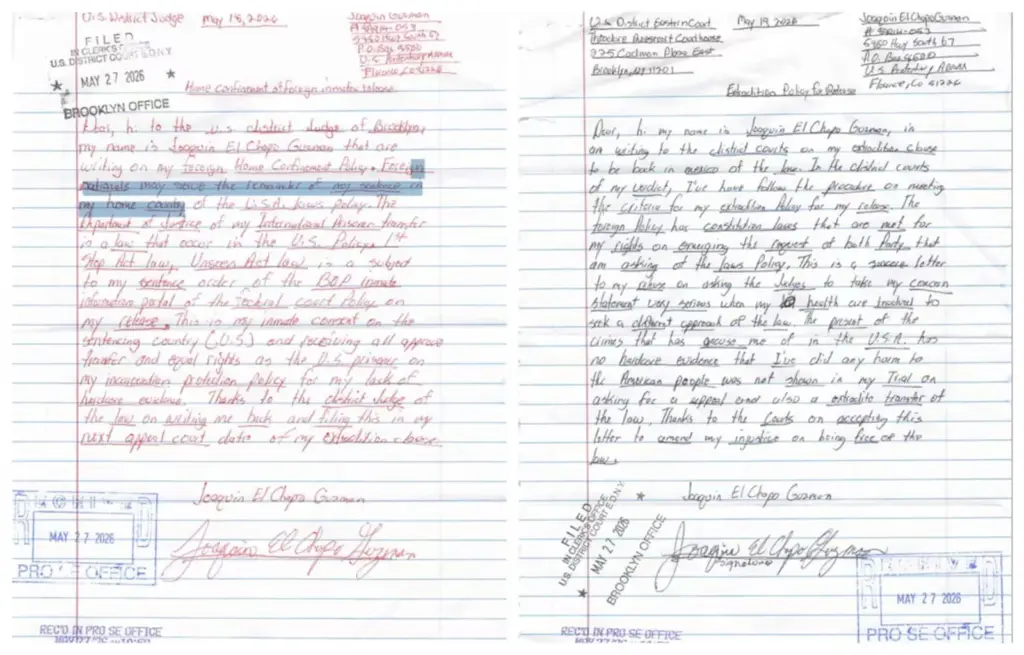 U.S. District Judge
May 18, 2026
Joaquin Guzman
5880 Hwy South 67
P.O. Box 8500
U.S. Penitentiary Admax
Florence, Co 81226
FILED
IN CLERK'S OFFICE
U.S. DISTRICT COURT E.D.N.Y.
★ MAY 27 2026 ★
BROOKLYN OFFICE
Home confinement of foreign inmates release
Dear, hi to the U.S. district Judge of Brooklyn,
my name is Joaquin El Chapo Guzman that are
writing on my foreign Home Confinement Policy. Foreign
nationals may serve the remainder of my sentence in
my home country of the U.S.A. laws policy. The
Department of Justice of my International Prisoner transfer
is a law that occur in the U.S. Policy. 1st
Step Act law, Unseen Act law is a subject
to my sentence order of the BOP inmate
information portal of the federal court Policy on
my release. This is my inmate consent on the
sentencing country (U.S.) and receiving all approve
transfer and equal rights as the U.S. prisoner on
my incarceration protection policy for my lack of
hardcore evidence. Thanks to the district Judge of
the law on writing me back and filing this in my
next appeal court dates of my extradition clause.
Joaquin El Chapo Guzman
Joaquin El Chapo Guzman
RECEIVED
MAY 27 2026
PRO SE OFFICE
REC'D IN PRO SE OFFICE
U.S. District Eastern Court
Theodore Roosevelt Courthouse
225 Cadman Plaza East
Brooklyn, NY 11201
May 19, 2026
Joaquin El Chapo Guzman
5880 Hwy South 67
P.O. Box 8500
U.S. Penitentiary Admax
Florence, Co 81226
Extradition Policy for Release
Dear, hi my name is Joaquin El Chapo Guzman, in
an writing to the district courts on my extradition clause
to be back in mexico of the law. In the district courts
of my verdict, I've have follow the procedure on meeting
the criteria for my extradition Policy for my release. The
foreign Policy has constitution laws that are met for
my rights on emerging the request of both Party that
am asking of the laws Policy. This is a sincere letter
to my abuse on asking the Judges to take my concern
statement very serious when my health are involved to
seek a different approach of the law. The present of the
crimes that has accuse me of in the U.S.A. has
no hardcore evidence that I've did any harm to
the American people was not shown in my Trial on
asking for a appeal and also a extradite transfer of
the law. Thanks to the Courts on accepting this
letter to amend my injustice on being free of the
law.
Joaquin El Chapo Guzman
Joaquin El Chapo Guzman
Signature
FILED
IN CLERK'S OFFICE
U.S. DISTRICT COURT E.D.N.Y.
★ MAY 27 2026 ★
BROOKLYN OFFICE
RECEIVED
MAY 27 2026
PRO SE OFFICE
REC'D IN PRO SE OFFICE